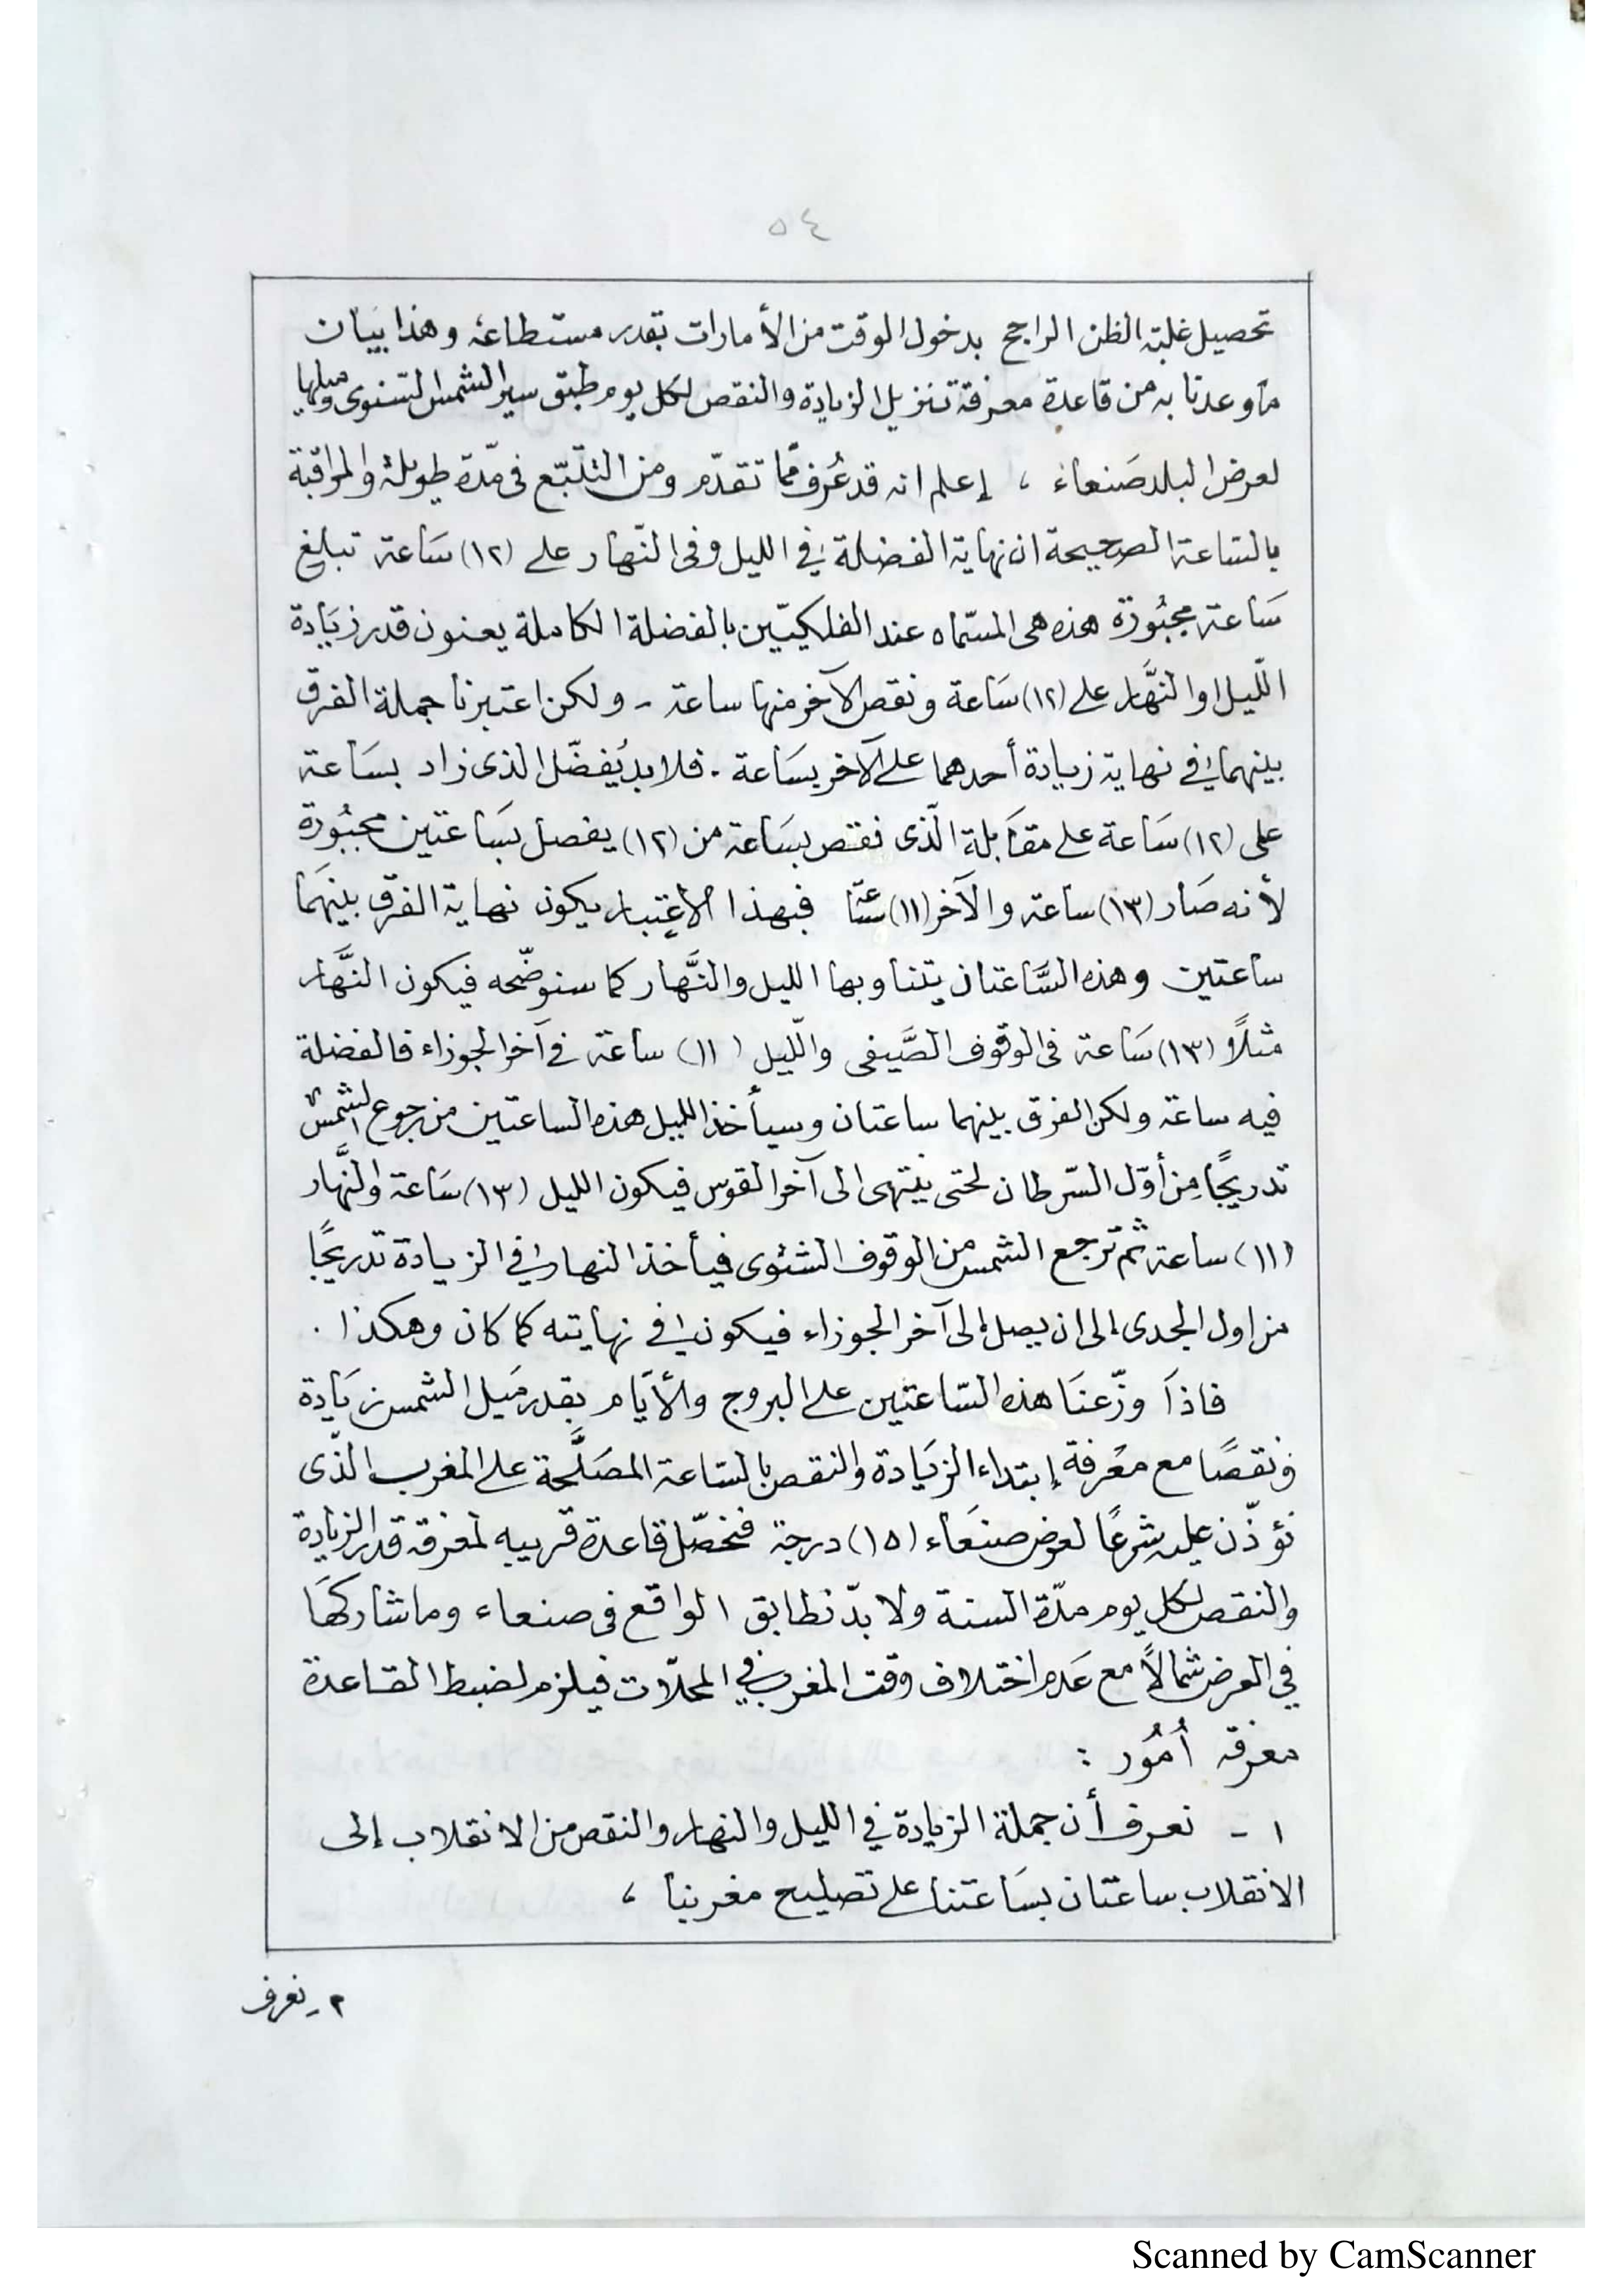 ٥٤
تحصيل غلبة الظن الراجح بدخول الوقت من الأمارات بقدر مستطاعه وهذا بيان
ما وعدنا به من قاعدة معرفة تنزيل الزيادة والنقص لكل يوم طبق سير الشمس السّنوى وميلها
لعرض البلد صَنعاء ، إعلم انه قد عُرف ممّا تقدّم ومن التتبّع فى مدّة طويلة والمراقبة
بالساعة الصحيحة ان نهاية الفضلة في الليل وفى النّهار على (١٢) سَاعة تبلغ
سَاعة مجبُورة هذه هى المسمّاه عند الفلكيّين بالفضلة الكاملة يعنون قدر زيَادة
اللّيل او النَّهار على (١٢) سَاعة ونقص الآخر منها ساعة - ولكن اعتبرنا جملة الفرق
بينهما في نهاية زيادة أحدهما على الآخر بسَاعة . فلا بد يُفضّل الذى زاد بسَاعة
على (١٢) سَاعة على مقابلة الّذى نقص بسَاعة من (١٢) يفصل بسَاعتين مجبُورة
لأنه صَار (١٣) ساعة والآخر (١١) ساعة فبهذا الاعتبار يكون نهاية الفرق بينهَما
ساعتين وهذه السَّاعتان يتناوبها الليل والنَّهار كما سنوضّحه فيكون النَّهار
مثلًا (١٣) سَاعة فى الوقوف الصَّيفى واللّيل (١١) ساعة في آخر الجوزاء فالفضلة
فيه ساعة ولكن الفرق بينهما ساعتان وسيأخذ الليل هذه الساعتين من رجوع الشمس
تدريجًا مِن أوّل السّرطان لحتى ينتهى الى آخر القوس فيكون الليل (١٣) سَاعة والنَّهار
(١١) ساعة ثم ترجع الشمس من الوقوف الشتوى فيأخذ النهار في الزيادة تدريجًا
من اول الجدى إلى ان يصل إلى آخر الجوزاء فيكون في نهايته كما كان وهكذا .
فاذَا وزّعنَا هذه السّاعتين على البروج والأيّام بقدر مَيل الشمس زيَادة
ونقصًا مع معْرفة إبتداء الزيَادة والنقص بالساعة المصَلَّحة على المغرب الذّى
نؤذّن عليه شرعًا لعرض صنعَاء (١٥) درجة فنحصّل قاعدة قريبه لمعرفة قدر الزيادة
والنقص لكل يوم مدّة السنة ولا بدّ تطابق الواقع فى صنعاء وما شاركهَا
في العرض شمالًا مع عَدم اختلاف وقت المغرب في المحلّات فيلزم لضبط القاعدة
معرفة أمُور :
١ - نعرف أن جملة الزيادة في الليل والنهار والنقص من الانقلاب إلى
الانقلاب ساعتان بسَاعتنا على تصليح مغربنا ،
٢ - نعرف
Scanned by CamScanner